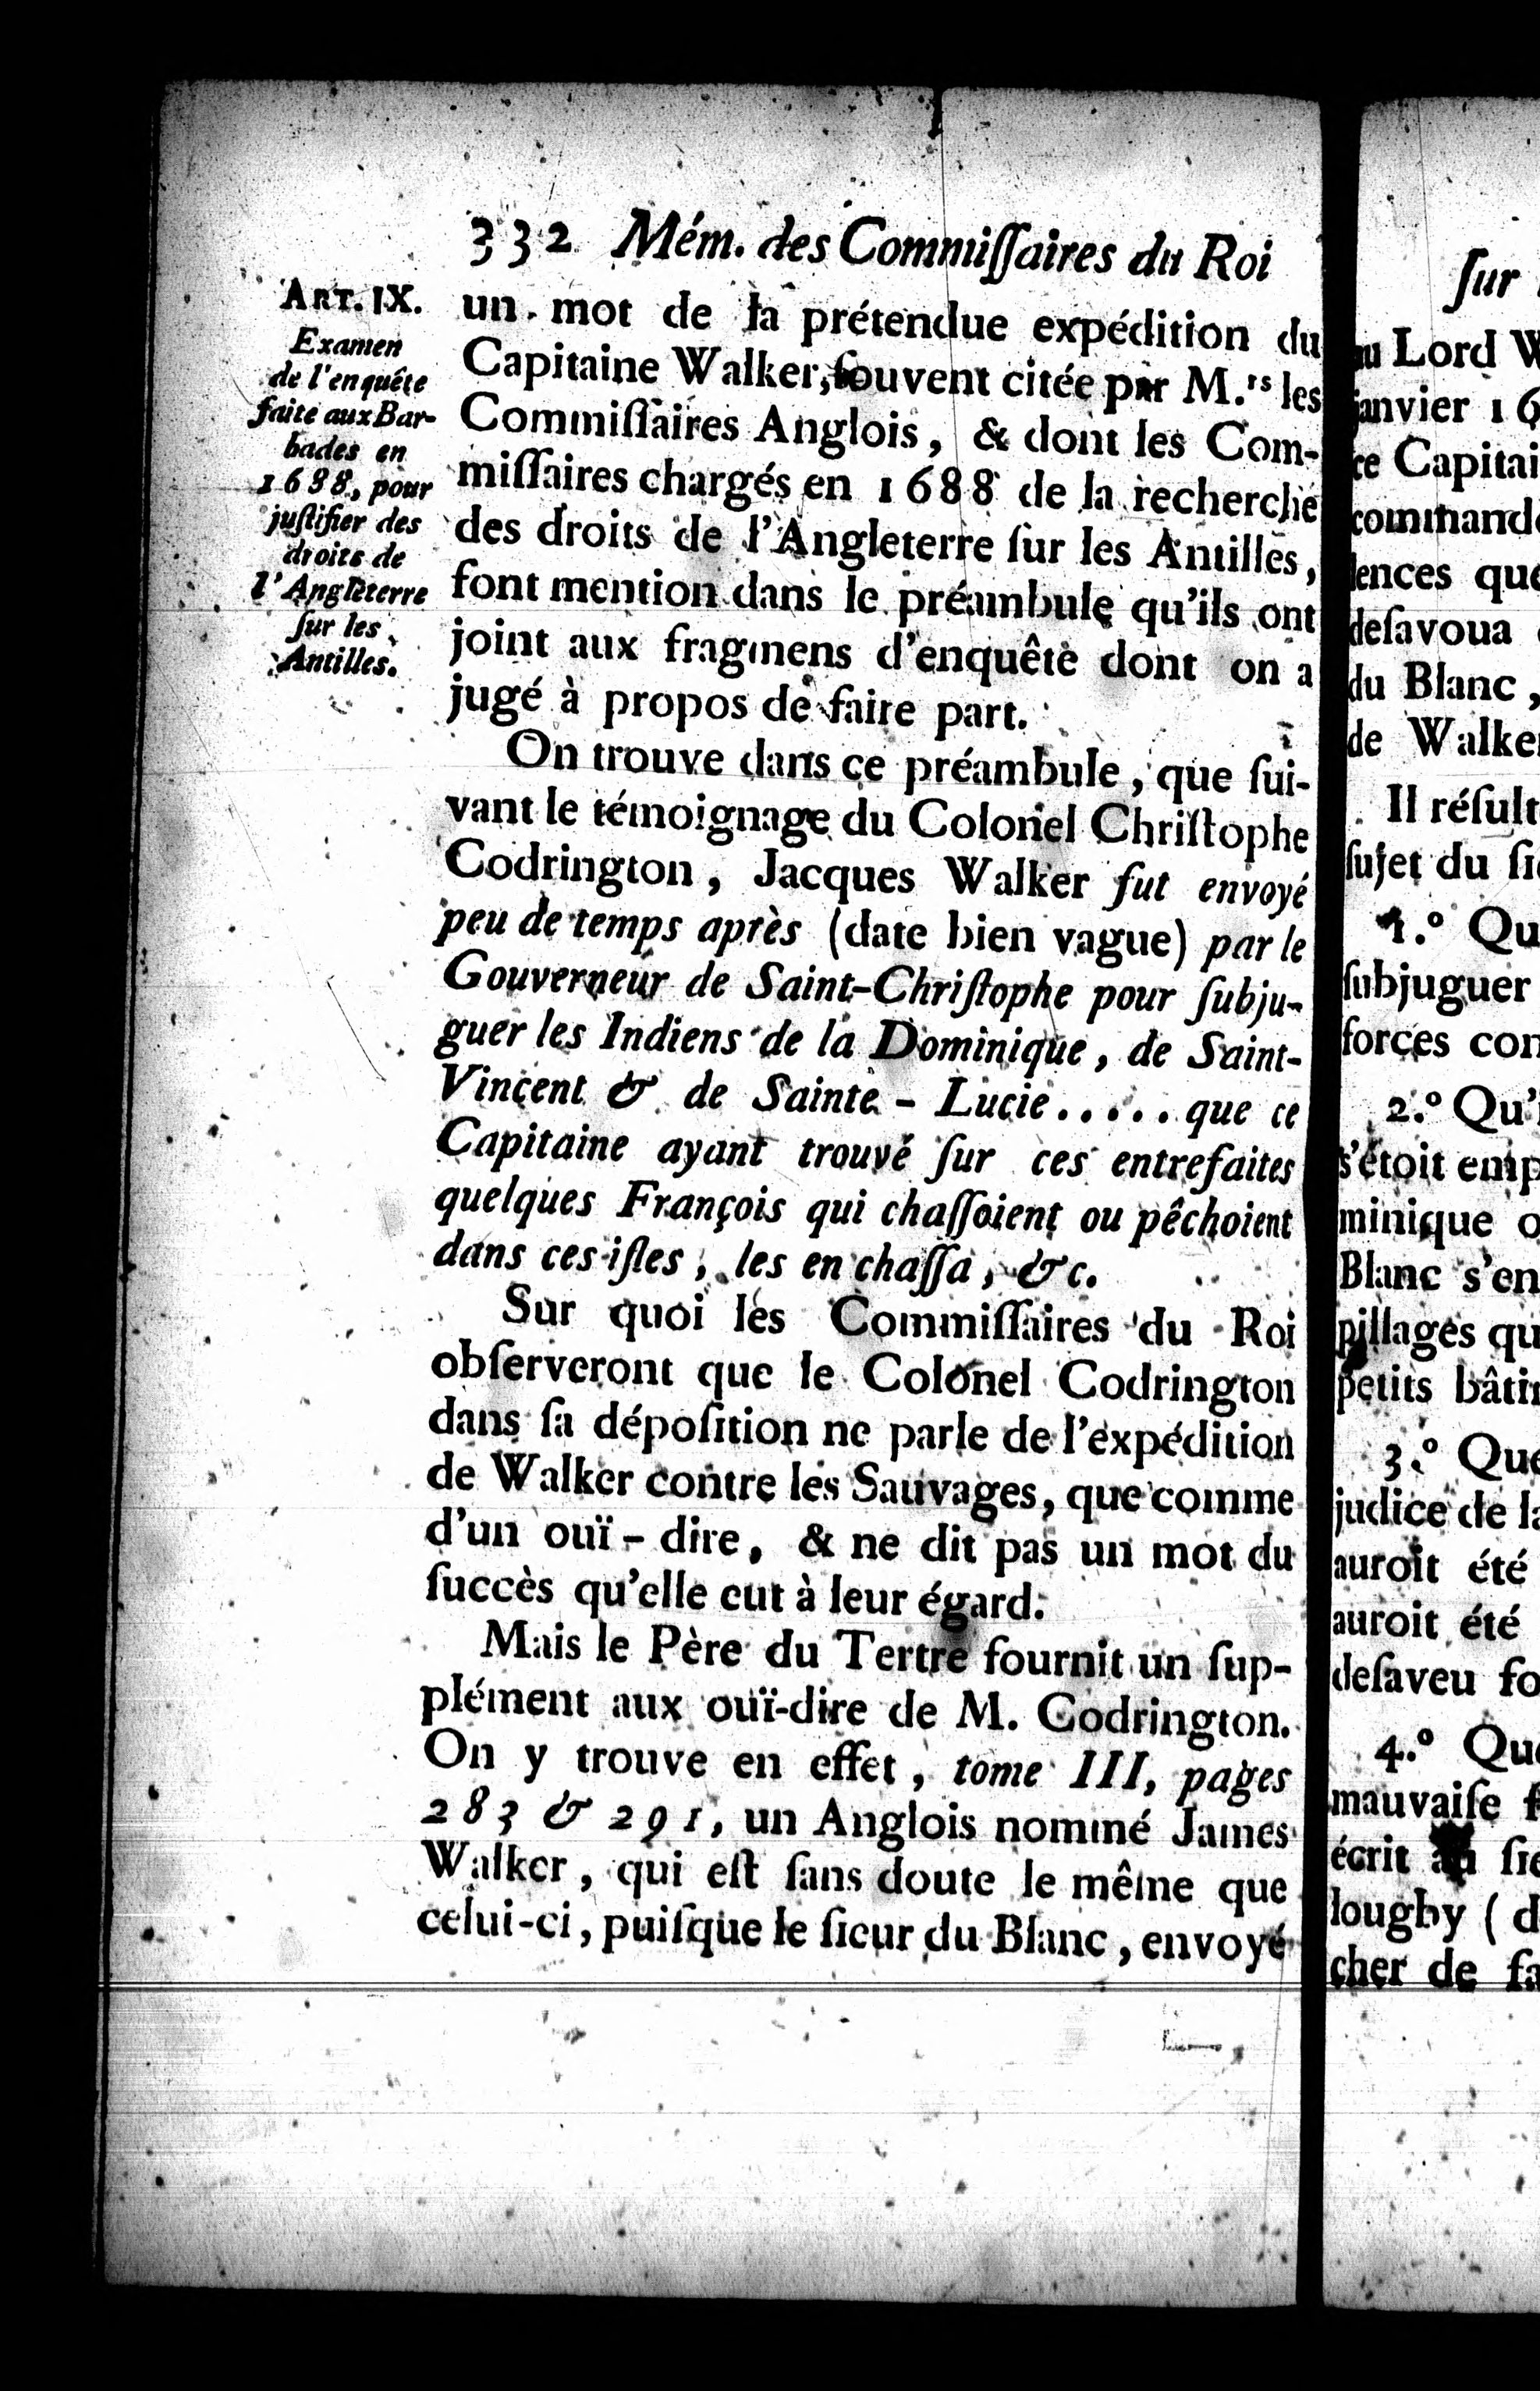 332 Mém. des Commiſſaires du Roi
ART. IX.
Examen
de l'enquête
faite aux Bar-
bades en
1688, pour
juſtifier des
droits de
l'Angleterre
ſur les
Antilles.
un mot de la prétendue expédition du
Capitaine Walker, ſouvent citée par M.rs les
Commiſſaires Anglois, & dont les Com-
miſſaires chargés en 1688 de la recherche
des droits de l'Angleterre ſur les Antilles,
font mention dans le préambule qu'ils ont
joint aux fragmens d'enquête dont on a
jugé à propos de faire part.
On trouve dans ce préambule, que ſui-
vant le témoignage du Colonel Chriſtophe
Codrington, Jacques Walker fut envoyé
peu de temps après (date bien vague) par le
Gouverneur de Saint-Chriſtophe pour ſubju-
guer les Indiens de la Dominique, de Saint-
Vincent & de Sainte-Lucie..... que ce
Capitaine ayant trouvé ſur ces entrefaites
quelques François qui chaſſoient ou pêchoient
dans ces iſles, les en chaſſa, &c.
Sur quoi les Commiſſaires du Roi
obſerveront que le Colonel Codrington
dans ſa dépoſition ne parle de l'expédition
de Walker contre les Sauvages, que comme
d'un ouï-dire, & ne dit pas un mot du
ſuccès qu'elle eut à leur égard.
Mais le Père du Tertre fournit un ſup-
plément aux ouï-dire de M. Codrington.
On y trouve en effet, tome III, pages
283 & 291, un Anglois nommé James
Walker, qui eſt ſans doute le même que
celui-ci, puiſque le ſieur du Blanc, envoyé
ſur
au Lord W
janvier 16
ce Capitai
commande
lences que
deſavoua
du Blanc,
de Walker
Il réſult
ſujet du ſie
1.° Qu
ſubjuguer
forces con
2.° Qu'i
s'étoit emp
minique o
Blanc s'en
pillages qu
petits bâtin
3.° Que
judice de la
auroit été
auroit été
deſaveu fo
4.° Que
mauvaiſe f
écrit au ſie
loughy ( d
cher de fa